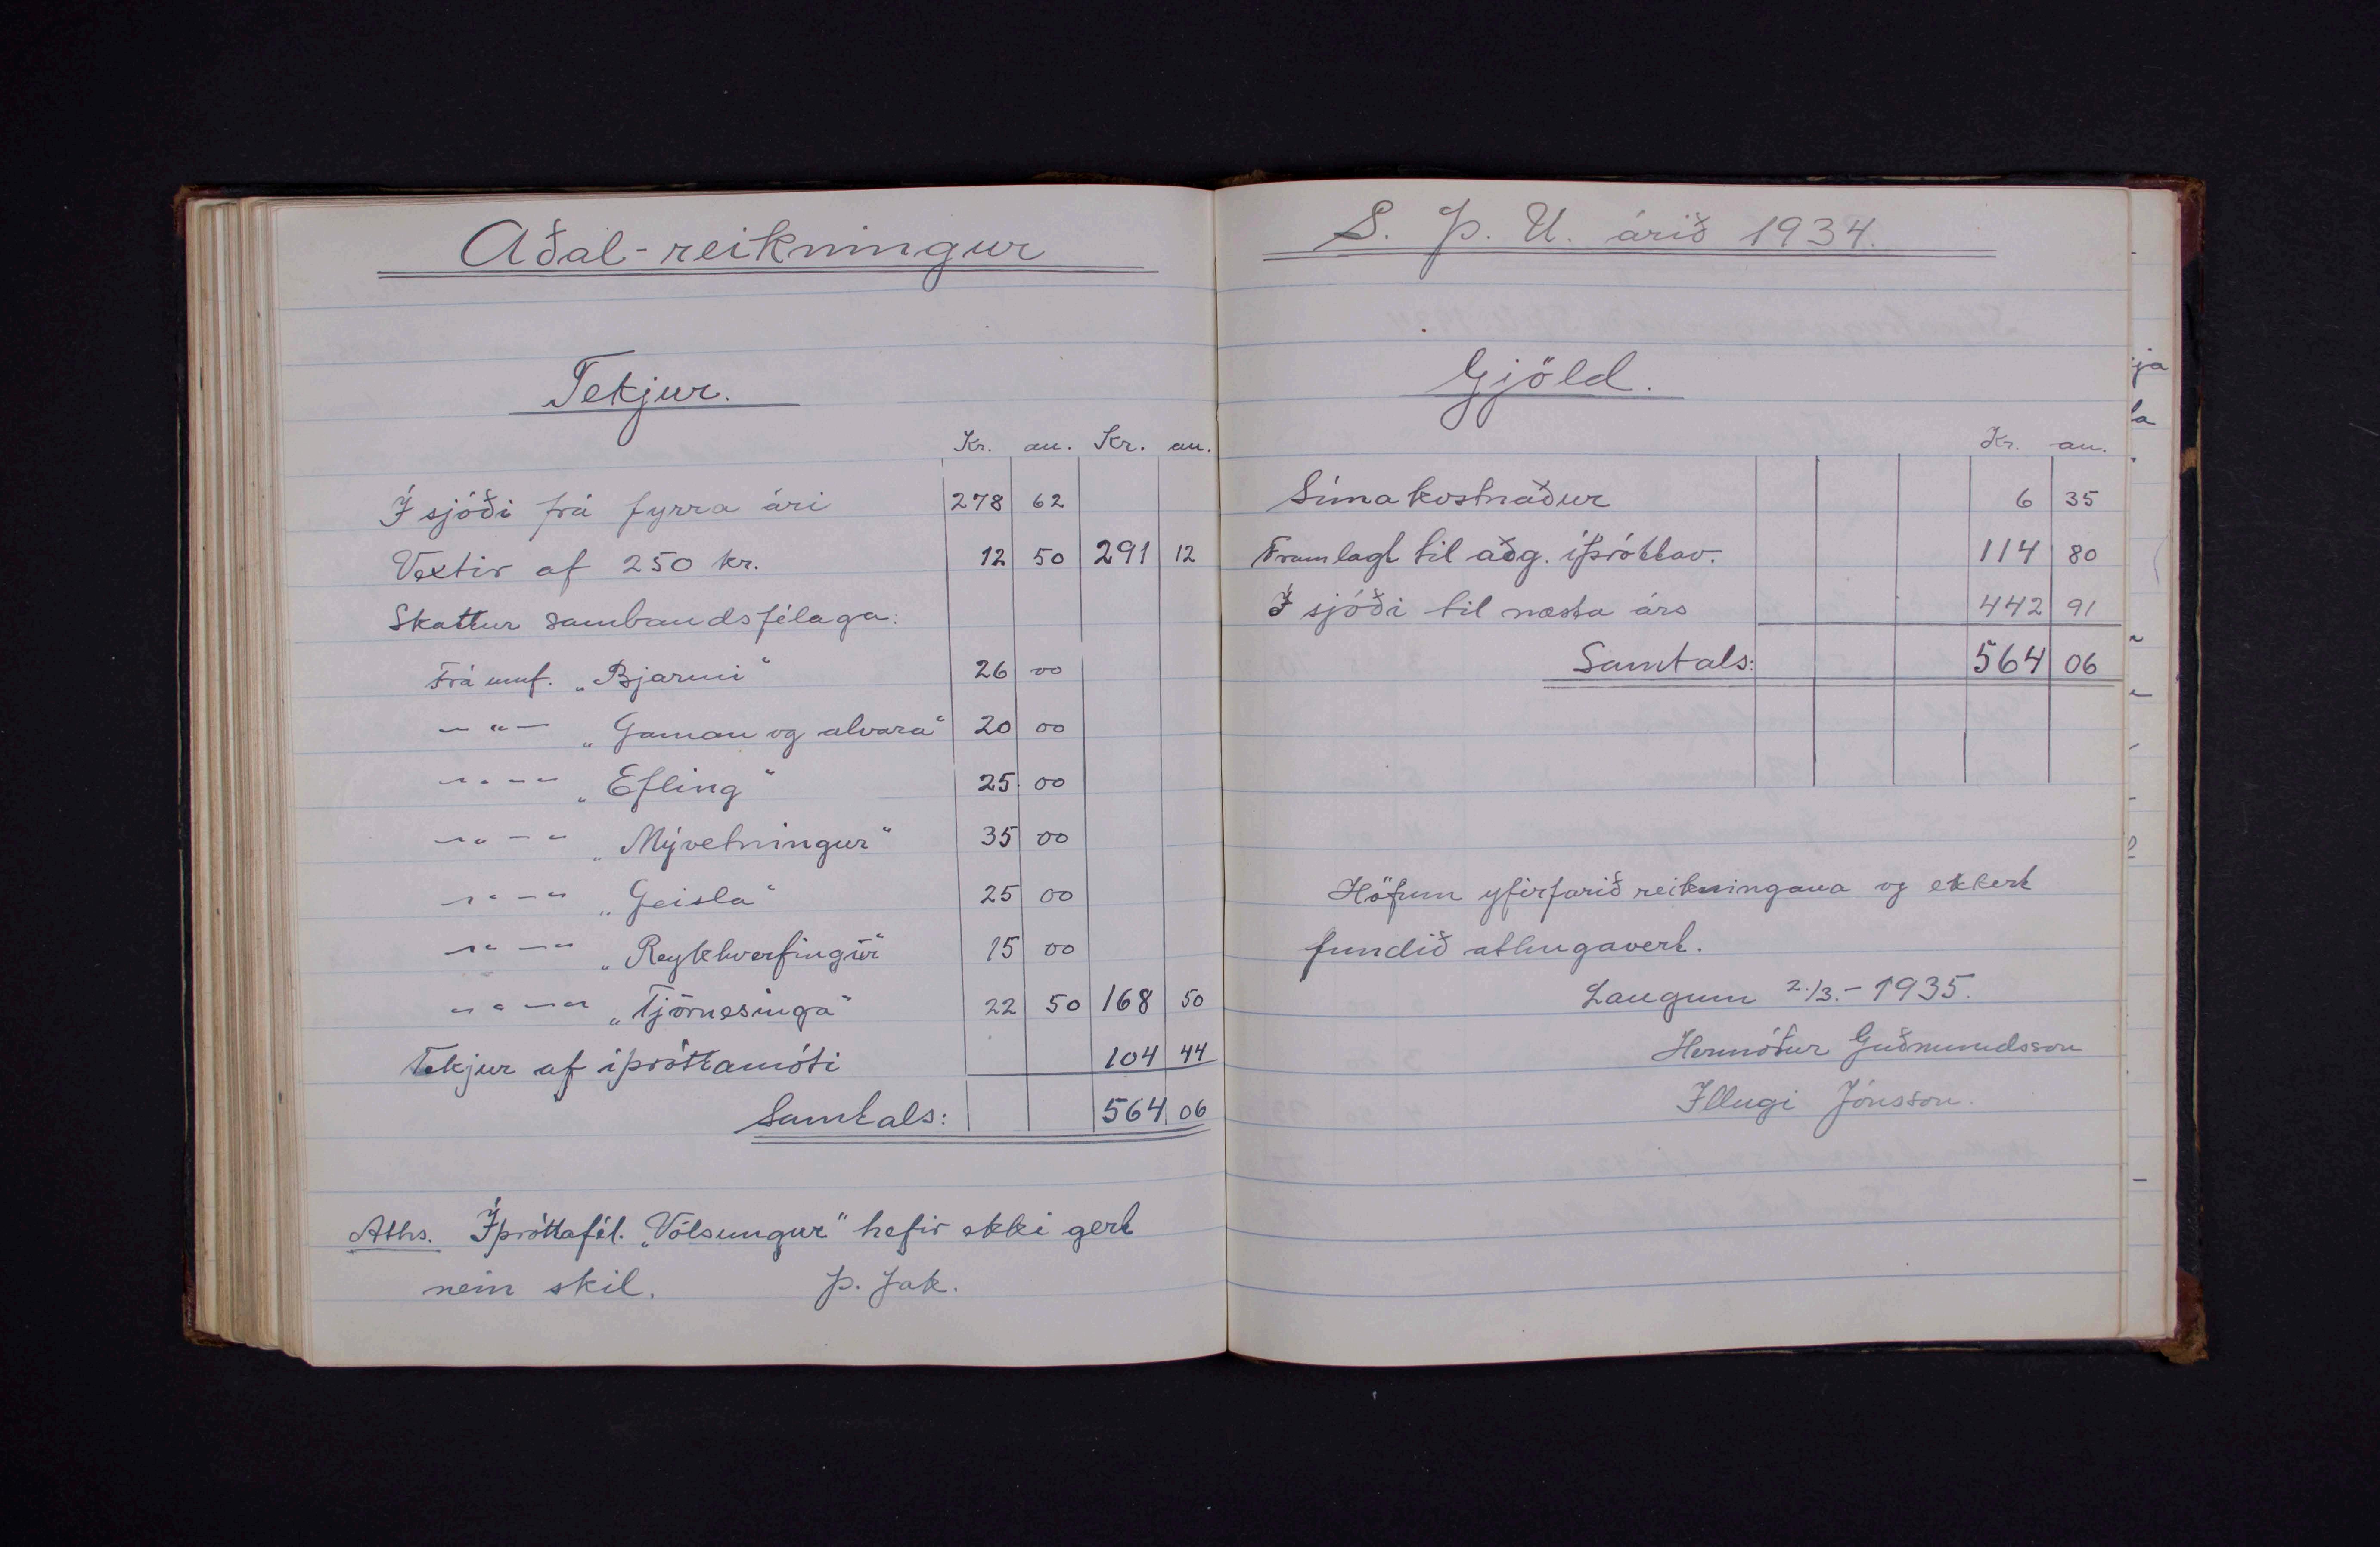 Aðal-reikningur
Tekjur.
Kr. au. Kr. au.
Í sjóði frá fyrra ári 278 62
Vextir af 250 kr. 12 50 291 12
Skattur sambandsfélaga:
Frá umf. „Bjarmi“ 26 00
— „ — „Gaman og alvara“ 20 00
— „ — „ „Efling“ 25 00
— „ — „ „Mývetningur“ 35 00
— „ — „ „Geisla“ 25 00
— „ — „ „Reykhverfingur“ 15 00
— „ — „ „Tjörnesinga“ 22 50 168 50
Tekjur af íþróttamóti 104 44
Samtals: 564 06
Aths. Íþróttafél. „Völsungur“ hefir ekki gert
nein skil. Þ. Jak.
S. Þ. U. árið 1934.
Gjöld.
Kr. au.
Símakostnaður 6 35
Framlagt til aðg. íþróttav. 114 80
Í sjóði til næsta árs 442 91
Samtals: 564 06
Höfum yfirfarið reikningana og ekkert
fundið athugavert.
Laugum 2./3.-1935.
Hermóður Guðmundsson
Illugi Jónsson.